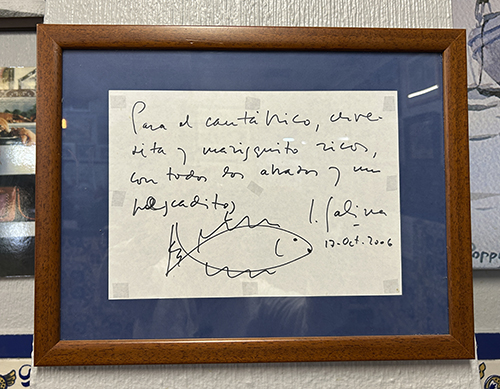 Para el cantábrico, cerve-
sita y marisquito ricos,
con todos los abrazos y un
pescadito,
J. Salina
12-Oct. 2006
Popp